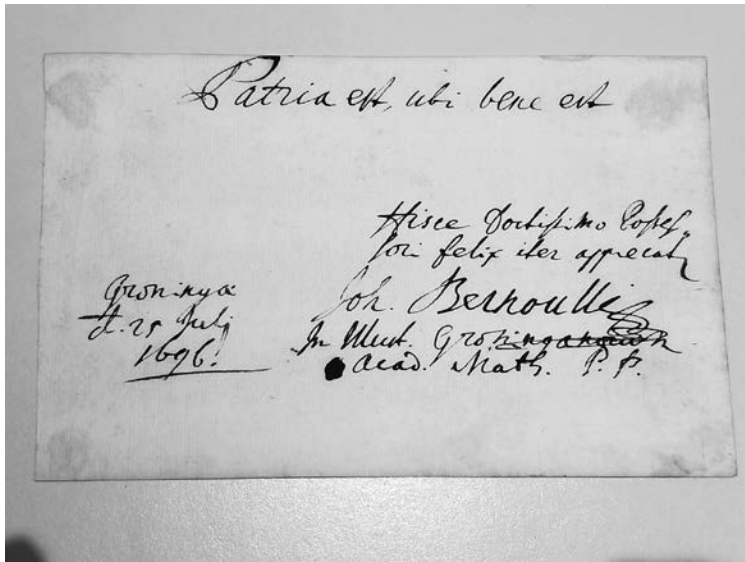 Patria est, ubi bene est
Hisce Doctissimo Posses-
sori felix iter apprecatr
Groningæ
d. 25 Julj
1696.
Joh. Bernoulli
In Illust. Groningana
Acad. Math. P. P.